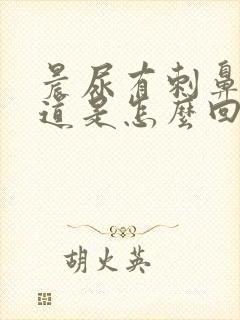 晨尿有刺鼻
道是怎麼回
胡火英